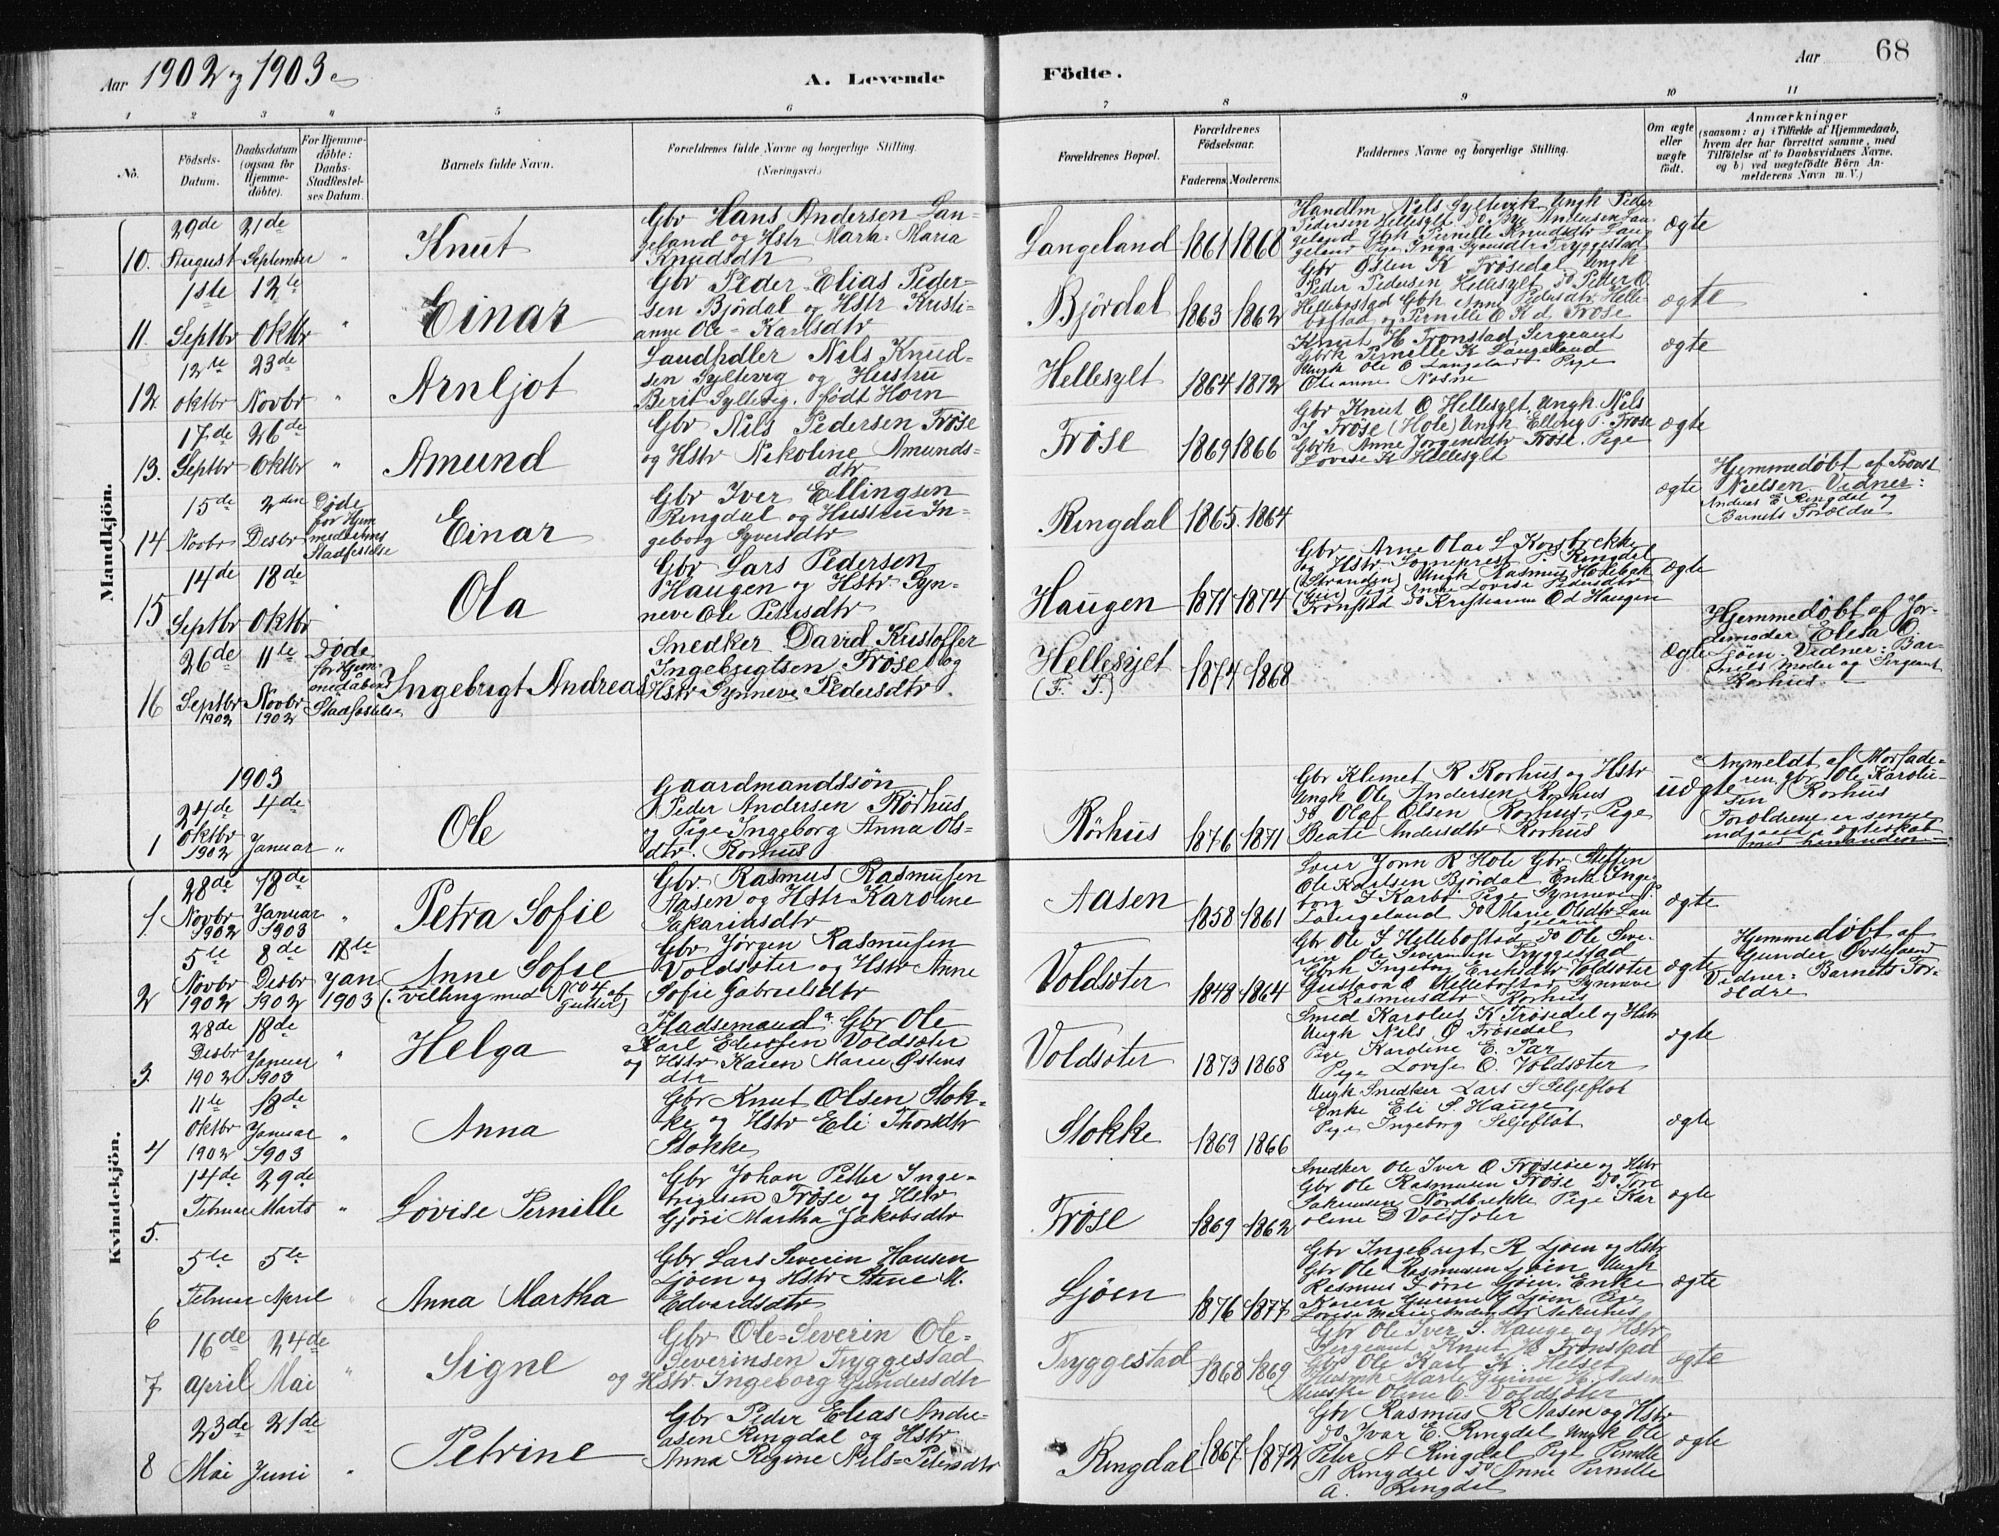 Aar 1902 og 1903
A. Levende
Födte.
Aar
68
1 2 3 4 5 6 7 8 9 10 11
No.
Födsels-
Datum.
Daabsdatum
(ogsaa for
Hjemme-
döbte).
For Hjemme-
döbte:
Daabs-
Stadfæstel-
ses Datum.
Barnets fulde Navn.
Forældrenes fulde Navne og borgerlige Stilling.
(Næringsvei.)
Forældrenes Bopæl.
Forældrenes
Födselsaar.
Faderens. Moderens.
Faddernes Navne og borgerlige Stilling.
Om ægte
eller
uægte
födt.
Anmærkninger
(saasom: a) i Tilfælde af Hjemmedaab,
hvem der har forrettet samme, med
Tilföielse af to Daabsvidners Navne,
og b) ved uægtefödte Börn An-
melderens Navn m. V.)
Mandkjön.
10. 29de August 21de September " Knut
Gbr Hans Andersen Lan-
geland og Hstr Marta Maria
Knudsdtr
Langeland 1861 1868
Handlm Nils Syltevik Ungk Peder
Pedersen Hellesylt Do
geland Gbrk Pernille Knudsdtr Lang
geland Pige Inga Tryggestad
ægte
11. 1ste Septbr 12te Oktbr " Einar
Gbr Peder Elias Peder-
sen Björdal og Hstr Kristi-
anne Ole-Karlsdtr
Björdal 1863 1862
Gbr Østen K Frøsedal Ungk
Peder Pedersen Hellesylt Do Peder O
Hellebostad Gbrk Anne Pedersdtr Helle-
bostad og Pernille O K d. Frøse
ægte
12. 12te Oktbr 23de Novbr Arnljot
Landhdler Nils Knud-
sen Syltevig og Hustru
Berit Syltevig, født Horn
Hellesylt 1864 1872
Knut H Tronstad Sergeant
Gbrk Pernille K Langeland
Ungk Ole O Langeland Pige
Oleanne
ægte
13. 17de Septbr 26de Oktbr " Amund
Gbr Nils Pedersen Frøse
og Hstr Nikoline Amunds-
dtr
Frøse 1869 1866
Gbr Knut O Hellesylt, Ungk Nils
I Frøse (Hole) Ungk Elling P. Frøse
Gbrk Anne Jørgensdtr Frøse. Pige
Lovise K Hellesylt
ægte
14 15de Novbr 2den Desbr Døde
før Hjem
medaabens
Stadfestelse Einar
Gbr Iver Ellingsen
Ringdal og Hustru In-
geborg Syversdtr
Ringdal 1865 1864
ægte
Hjemmedøbt af Provst
Nielsen. Vidner:
Andreas E Ringdal og
Barnets Forældre
15 14de Septbr 18de Oktbr " Ola
Gbr Lars Pedersen
Haugen og Hstr Syn-
neve Ole Petersdtr
Haugen 1871 1874
Gbr Arne Olai L Korsbrekke
og Hstr Sogneprest P. Ringdal
(Stranden) Ungk Rasmus Holebak
Pige Anne Lovise Pedersdtr
Tronstad Do Kristianne O d Haugen
ægte
16 26de Septbr 1902 11te Novbr 1902 Døde
før Hjem-
medaabens
Stadfæstelse Ingebrigt Andreas
Snedker David Kristoffer
Ingebrigtsen Frøse og
Hstr Synneve Pedersdtr.
Hellesylt
(F. S.) 1874 1868
Ægte
Hjemmedøbt af Jor-
demoder Elesa O
Ljøen. Vidner: Bar-
nets Moder og Sergeant
Rørhus.
1903
1 24de Oktbr 1902 4de Januar " Ole
Gaardmandssøn
Peder Andersen Rørhus
og Pige Ingeborg Anna Ols-
dtr. Rørhus
Rörhus 1876 1871
Gbr Klemet R Rørhus og Hstr
Ungk Ole Andersen Rørhus
Do Olaf Olsen Rørhus, Pige
Beate Andersdtr Rørhus
uægte
Anmeldt af Morfade-
ren, gbr Ole Karolu-
sen Rørhus
Forældrene er senere
indgaaet i ægteskab
med hinanden
Kvindekjön.
1 28de Novbr 1902 18de Januar 1903 " Petra Sofie
Gbr. Rasmus Rasmusen
Aasen og Hstr Karoline
Sakariasdtr
Aasen 1858 1861
Leier Jonn R Hole Gbr Steffen
Ole Karlsen Bjørdal Enke Inge-
borg I Karbø Pige Synneve P
Langeland Do Marie Olsdtr Lan
ægte
2 5te Novbr 1902 8de Desbr 1902 18te Jan 1903 Anne Sofie
(tvilling med No 4 af
Gutter)
Gbr Jørgen Rasmusen
Voldsæter og Hstr Anne
Sofie Gabrielsdtr
Voldsæter 1848 1864
Gbr Ole I Hellebostad Do Ole Seve-
rin Ole Severinsen Tryggestad
Gbrk Ingeborg Eriksdtr Voldsæter
Gustava O Hellebostad Synneve
Rasmusdtr Rørhus
ægte
Hjemmedøbt af
Gunder Øvstegaard
Vidner: Barnets For-
ældre
3. 28de Desbr 1902 18de Januar 1903 " Helga
Pladsemand a. Gbr Ole
Karl Eliasen Voldsæter
og Hstr Karen Marie Østens
dtr
Voldsæter 1873 1868
Smed Karolus K Frøsedal og Hstr
Ungk Nils O Frøsedal
Pige Karoline E. Par
Pige Lovise O. Voldsæter
ægte
4 11te Oktbr 1902 18de Januar 1903 " Anna
Gbr Knut Olsen Stok-
ke og Hstr Eli Thorsdtr
Stokke
Stokke 1869 1866
Ungk Snedker Lars S Seljeflot
Enke Eli S. Hauge
Pige Ingeborg Seljeflot
ægte
5. 14de Februar 29de Marts " Lovise Pernille
Gbr Johan Petter Inge-
brigtsen Frøse og Hstr
Gjöri Martha Jakobsdtr
Frøse 1869 1862
Snedker Ole Iver O Frøsøie og Hstr
Gbr Ole Rasmusen Frøse Do Tore
Sakariasen Nordbrekke Pige Kar
oline D Voldsæter
ægte
6 5te Februar 5te April " Anna Martha
Gbr Lars Severin Hansen
Ljøen og Hstr Stine M.
Edvardsdtr
Ljøen 1876 1877
Gbr Ingebrigt R Ljøen og Hstr
Gbr Ole Rasmusen Ljøen Ungk
Rasmus I Ljøen. Enke
Karen Gurine G Ljøen Pige
Lovise Marie
ægte
7 16de April 24de Mai " Signe
Gbr Ole-Severin Ole-
Severinsen Tryggestad
og Hstr. Ingeborg Gundersdtr
Tryggestad 1868 1869
Gbr Ole Iver S. Hauge og Hstr
Sergeant Knut H Tronstad
Gbr Ole Karl K. Helset
Marte Gurine H. Aasen
Oline O. Voldsæter
ægte
8 23de Mai 21de Juni " Petrine
Gbr Peder Elias Andre-
asen Ringdal og Hstr
Anna Regine Nils-Petersdtr
Ringdal 1867 1872
Gbr Rasmus R Aasen og Hstr
Do Ivar E. Ringdal Ungk Ole
Peter A Ringdal Pige Pernille
A Ringdal Do Anne Pernille
A. Ringdal
ægte